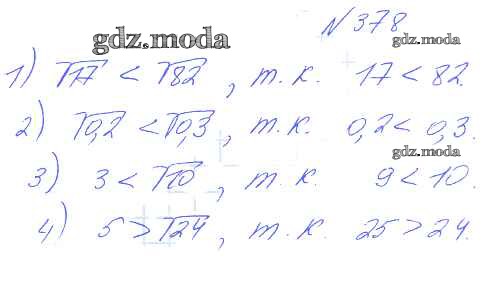 № 378
gdz.moda
gdz.moda
1) √17 < √82, т.к. 17 < 82.
2) √0,2 < √0,3, т.к. 0,2 < 0,3.
gdz.moda
3) 3 < √10, т.к. 9 < 10.
4) 5 > √24, т.к. 25 > 24.